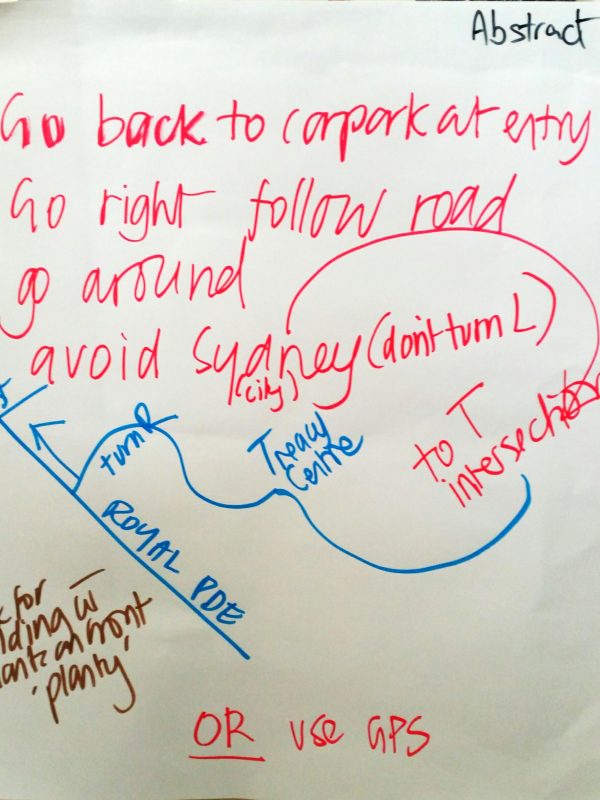 Abstract
Go back to carpark at entry
Go right follow road
go around
avoid Sydney (don't turn L)
(city)
to T
intersection
turn R
Treacy
Centre
ROYAL PDE
for
w
on front
'planty'
OR use GPS